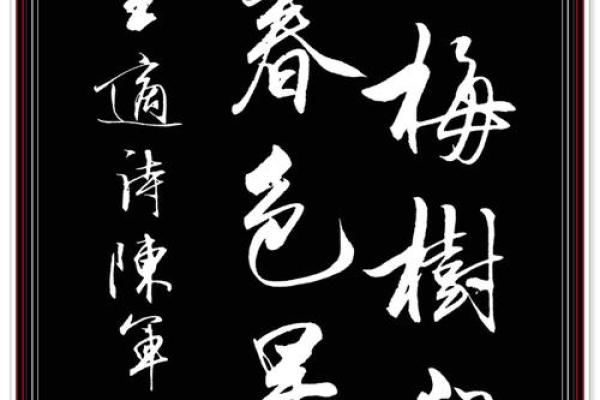 梅樹
春色早
王適詩陳軍